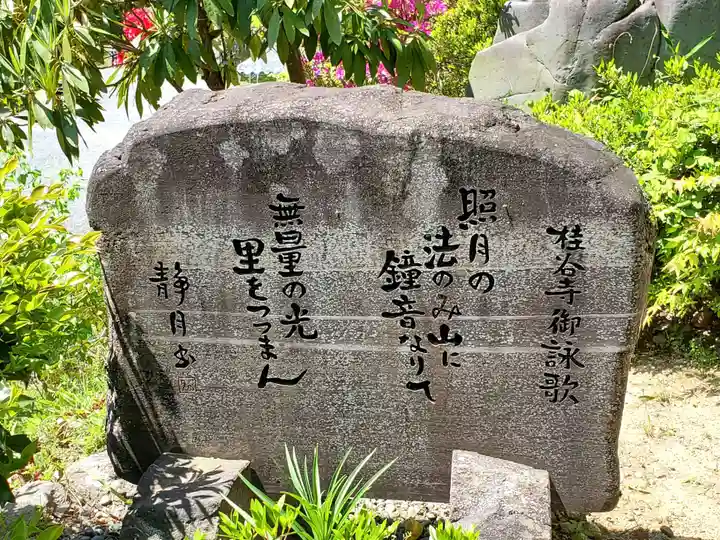 桂谷寺御詠歌
照月の
法のみ山に
鐘音なりて
無量の光
里をつつまん
静月書